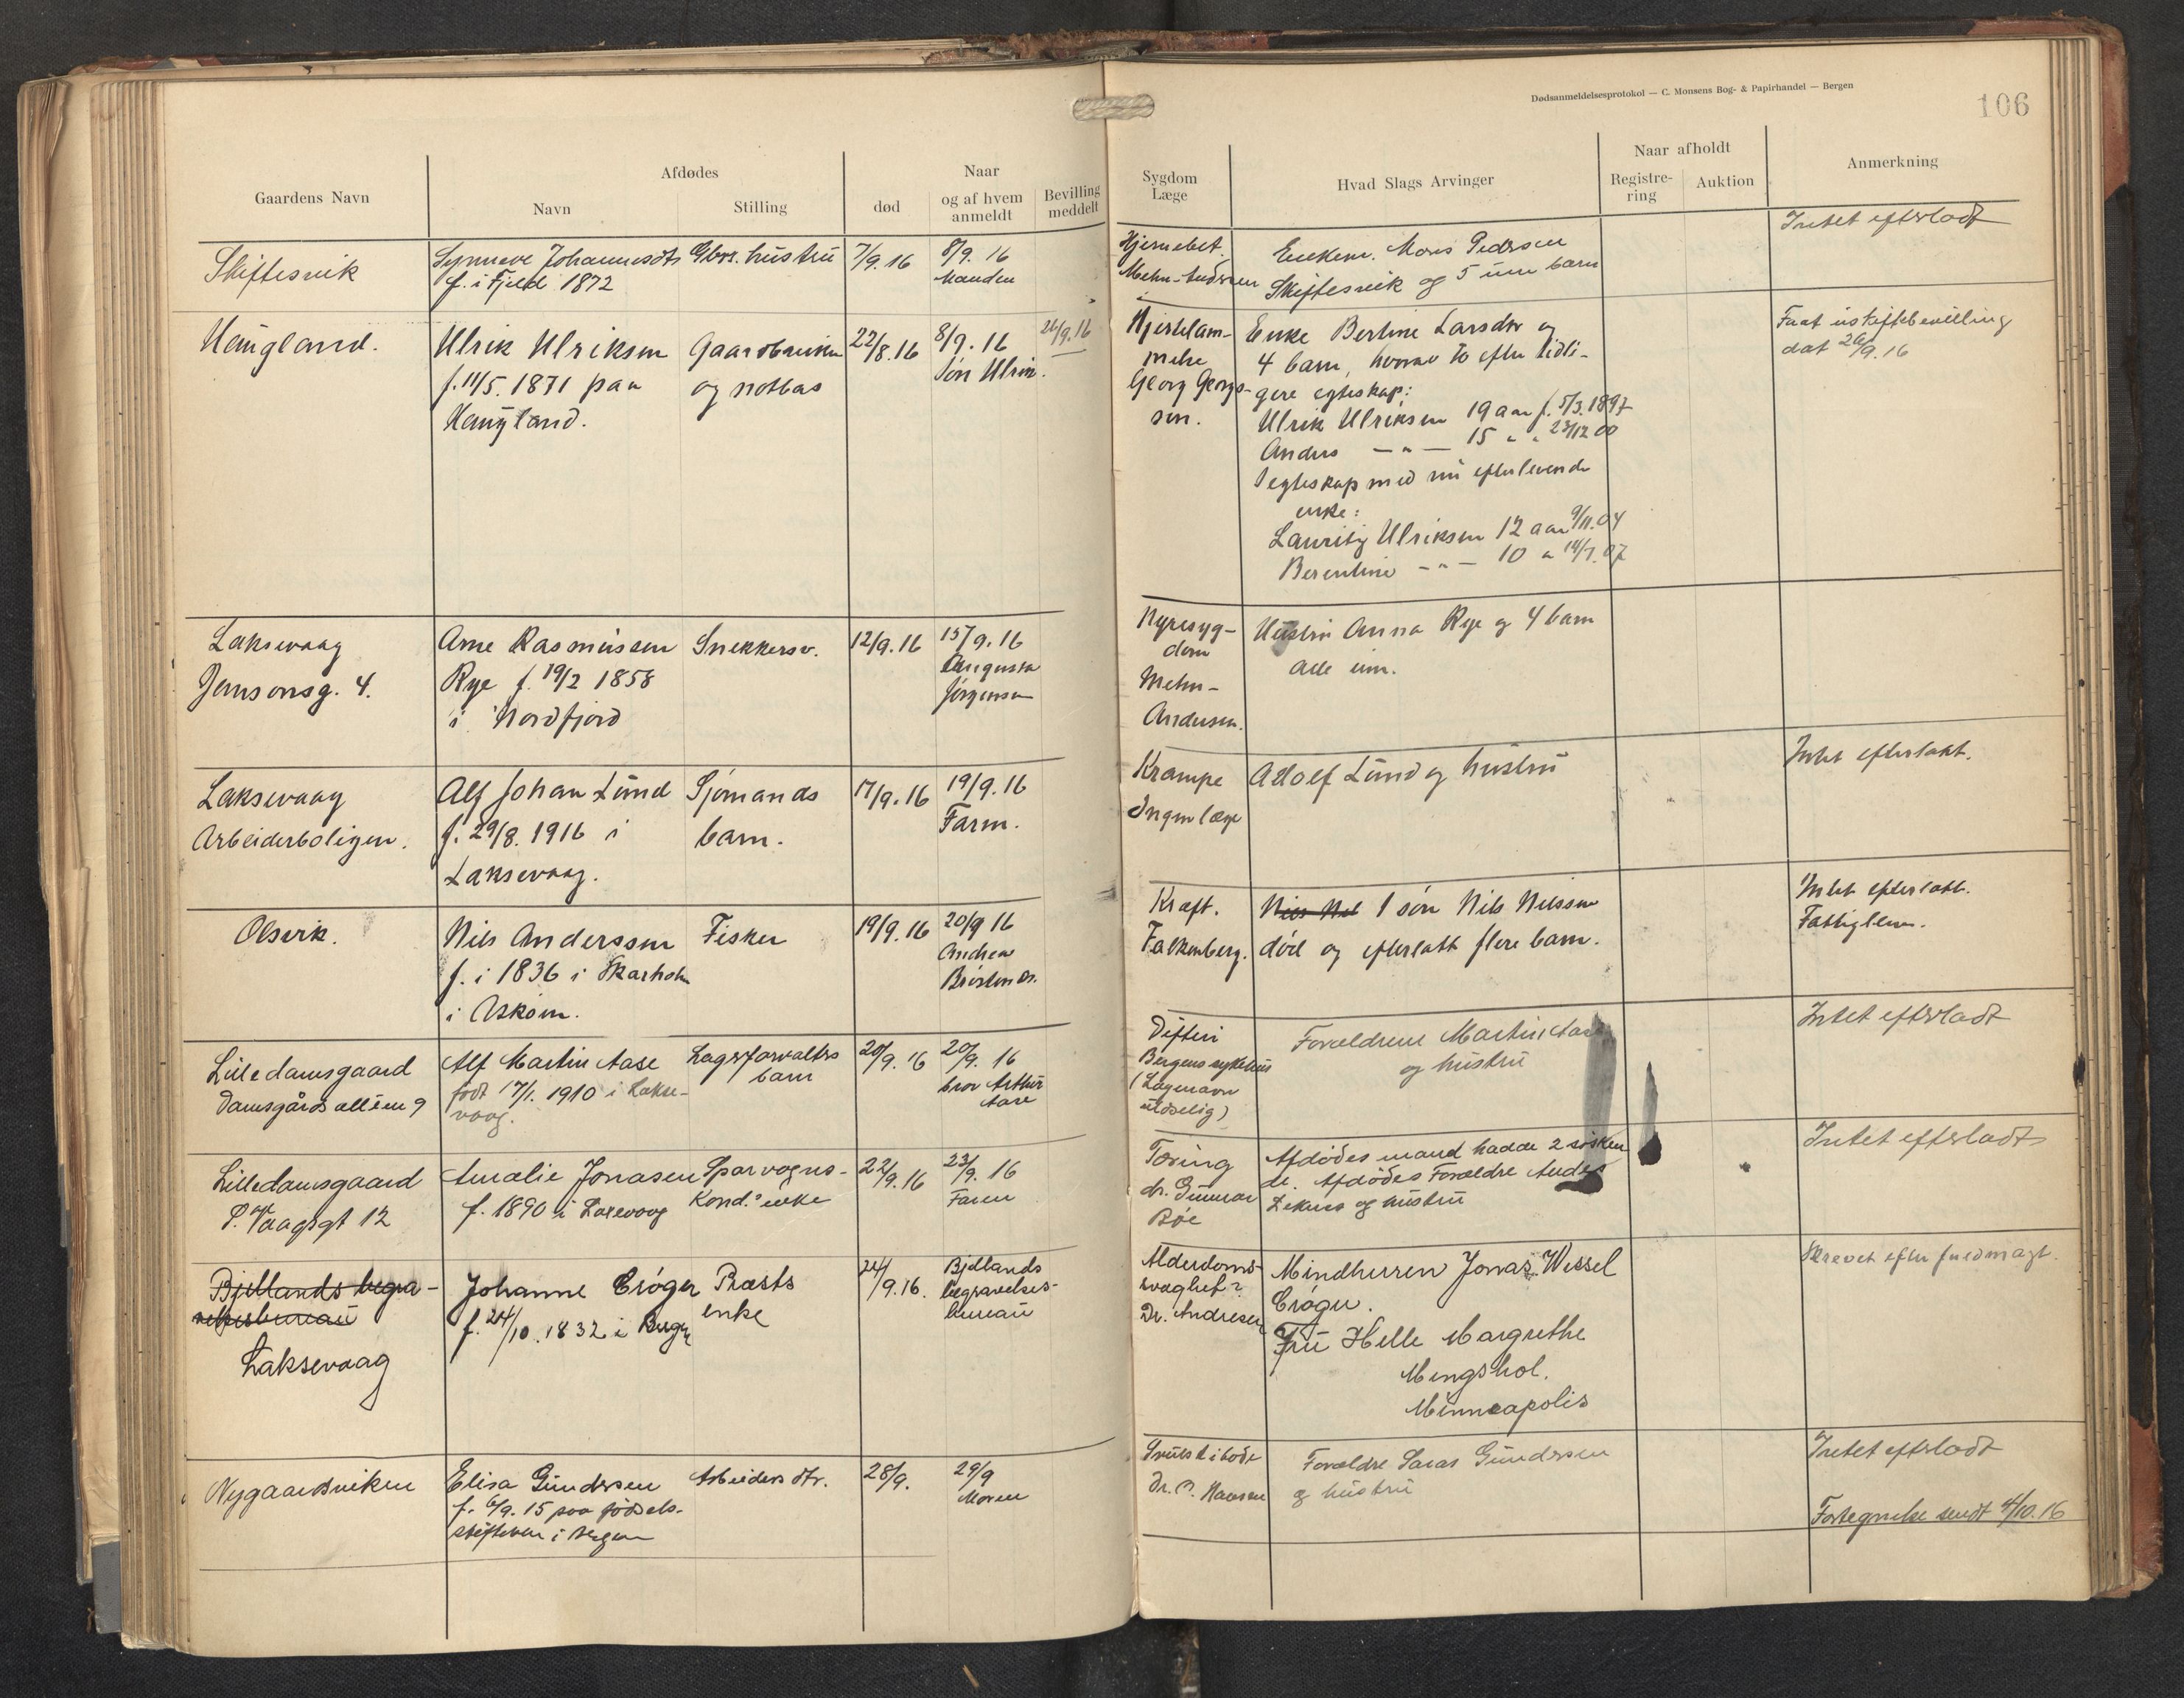 Dødsanmeldelsesprotokol — C. Monsens Bog- & Papirhandel — Bergen
106
Gaardens Navn
Afdødes
Navn
Stilling
Naar
død
og af hvem anmeldt
Bevilling meddelt
Sygdom
Læge
Hvad Slags Arvinger
Naar afholdt
Registrering
Auktion
Anmerkning
Skiftesvik
Synneve Johannesdtr
f. i Fjeld 1872
Gbrs. hustru
7/9. 16
8/9. 16
Manden
Hjernebet.
Mehn-Andersen
Enkem. Mons Pedersen
Skiftesvik og 5 um barn
Intet efterladt
Haugland.
Ulrik Ulriksen
f. 11/5. 1871 paa
Haugland.
Gaardbruker
og notbas
22/8. 16
8/9. 16
Søn Ulrik.
26/9. 16
Hjertelam-
melse
Georg Georgs-
sen.
Enke Bertine Larsdtr og
4 barn, hvorav to efter tidli-
gere egteskap:
Ulrik Ulriksen 19 aar f. 5/3. 1897
Anders — " — 15 " " 23/12 00
I egteskap med nu efterlevende
enke:
Lauritz Ulriksen 12 aar 9/11. 04
Berentine - " - 10 " 14/7. 07
Faat uskiftebevilling
dat 26/9. 16
Laksevaag
Jansonsg. 4.
Arne Rasmussen
Rye f. 19/2 1858
i Nordfjord
Snekkersv.
12/9. 16
15/9. 16
Augusta
Jørgensen
Nyresyg-
dom
Mehn-
Andersen.
Hustru Anna Rye og 4 barn
alle um.
Laksevaag
Arbeiderboligen.
Alf Johan Lund
f. 29/8. 1916 i
Laksevaag.
Sjømands
barn.
17/9. 16
19/9. 16
Farm.
Krampe
Ingen læge
Adolf Lund og hustru
Intet efterlatt.
Olsvik.
Nils Anderssen
f. i 1836 i Skarholm
i Askøen.
Fisker
19/9. 16
20/9 16
Andrea
Kræft.
Falkenberg.
Nils Nil 1 søn Nils Nilssen
død og efterlatt flere barn.
Intet efterlatt.
Fattiglem.
Lille damsgaard
Damsgårds alléen 9
Alf Martin Aase
født 17/1. 1910 i Lakse-
vaag.
Lagerforvalters
barn
20/9. 16
20/9. 16
bror Arthur
Aase
Difteri
Bergens sykehus
(Lægenavn
utydelig)
Forældrene Martin Aase
og hustru
Intet efterladt
Lilledamsgaard
P. Vaagsgt 12
Amalie Jonasen
f. 1890 i Laxevaag
Sporvogns-
kond.s enke
22/9. 16
23/9. 16
Faren
Tæring
dr. Gunnar
Bøe
Afdødes mand hadde 2 søsken
Afdødes Forældre Anders
og hustru
Intet efterladt
Bjellands begra-
velsesbureau
Laksevaag
Johanne Crøger
f. 24/10. 1832 i Bergen
Præsts
enke
24/9. 16.
Bjellands
begravelses-
bureau
Alderdoms-
svaghet?
Dr. Andresen
Mindherren Jonas Wessel
Crøger.
Fru Helle Margrethe
Mengshol.
Minneapolis
Skrevet efter fuldmagt.
Nygaardsviken
Elisa Gundersen
f. 6/9. 15 paa fødsels-
stiftelsen i Bergen
Arbeiders dtr.
28/9.
29/9
Moren
Dr. P. Hansen
Forældre Lars Gundersen
og hustru
Intet efterladt
Fortegnelse sendt 4/10. 16